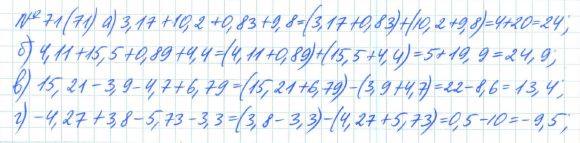 № 71 (71) а) 3,17+10,2+0,83+9,8=(3,17+0,83)+(10,2+9,8)=4+20=24;
б) 4,11+15,5+0,89+4,4=(4,11+0,89)+(15,5+4,4)=5+19,9=24,9;
в) 15,21-3,9-4,7+6,79=(15,21+6,79)-(3,9+4,7)=22-8,6=13,4;
г) -4,27+3,8-5,73-3,3=(3,8-3,3)-(4,27+5,73)=0,5-10=-9,5;